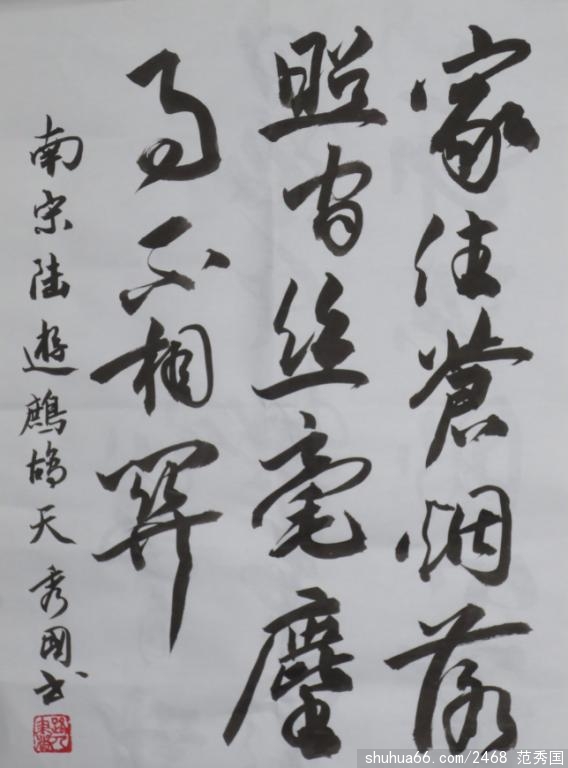 家住蒼烟落
照间丝毫塵
事不相關
南宋陸遊鷓鴣天 秀國书
shuhua66.com/2468 范秀国